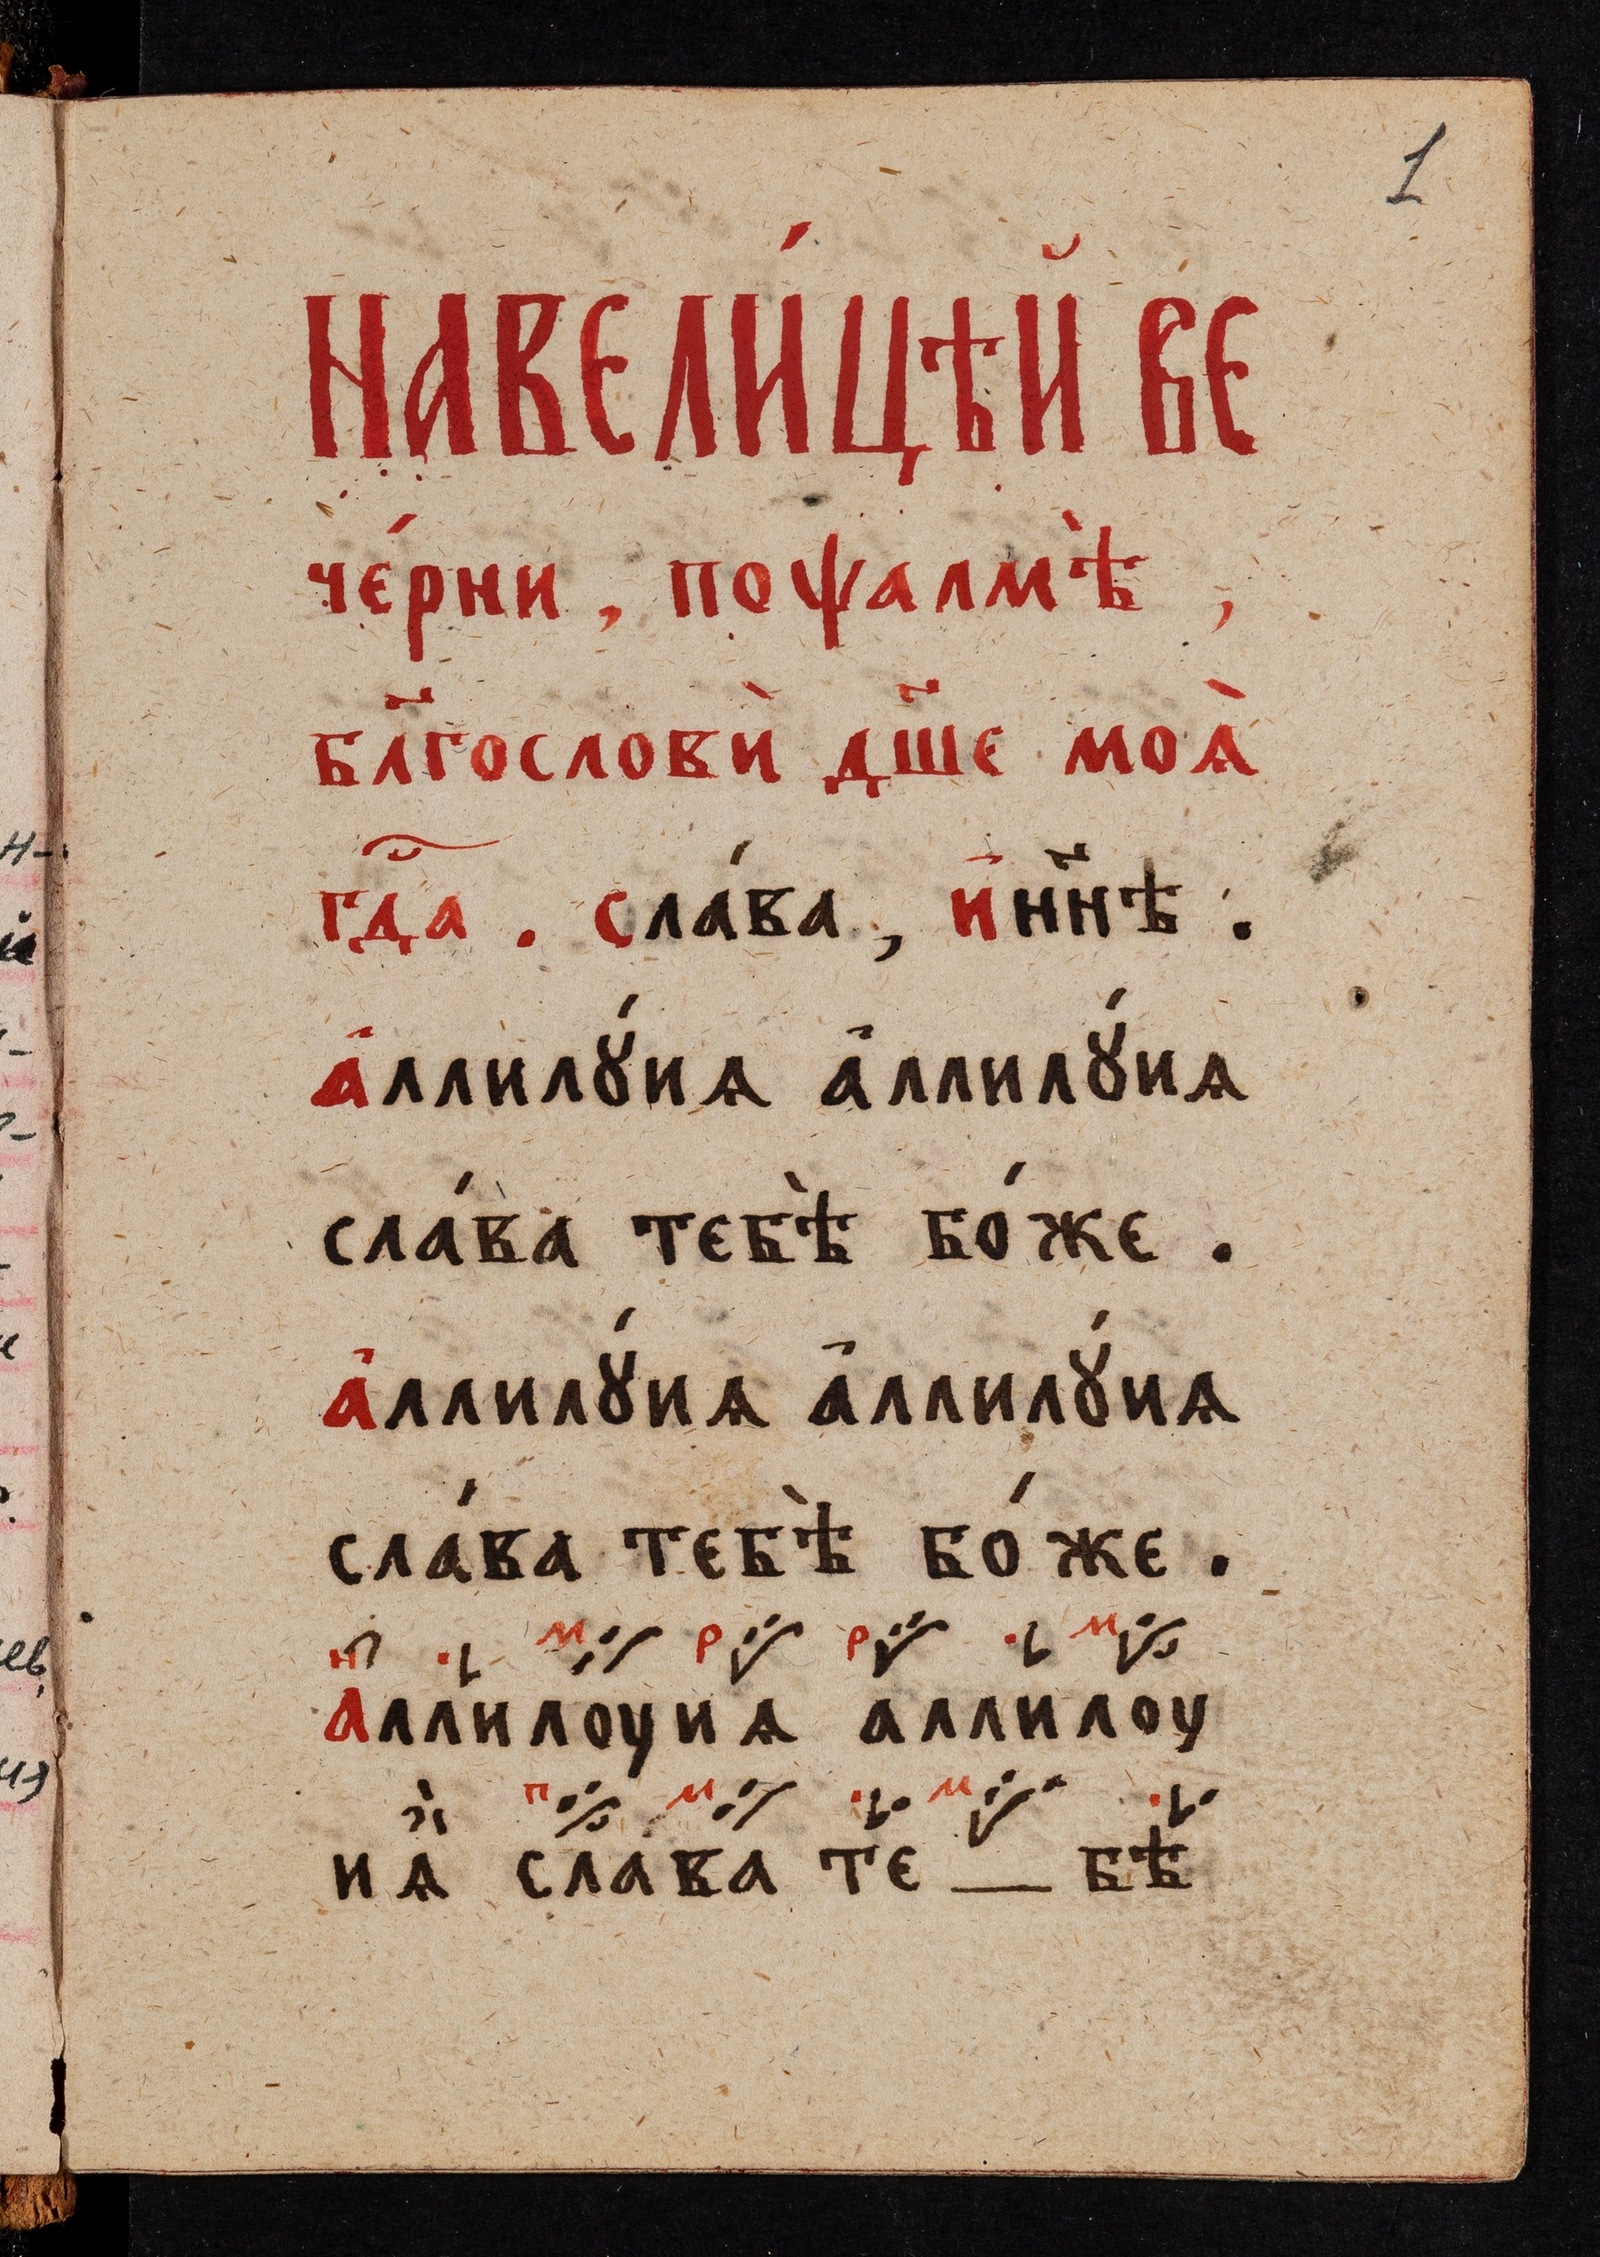 1
НАВЕЛИ́ЦѢЙ ВЕ
че́рни , поѱалмѣ̀ ,
бл҃гословѝ дш҃е моѧ̀
гдⷭ҇а . сла́ва , и҆нн҃ѣ .
а҆ллилꙋ́иѧ а҆ллилꙋ́иѧ
сла́ва тебѣ̀ бо́же .
а҆ллилꙋ́иѧ а҆ллилꙋ́иѧ
сла́ва тебѣ̀ бо́же .
Аллилоуиѧ аллилоу
иѧ слава те — бѣ